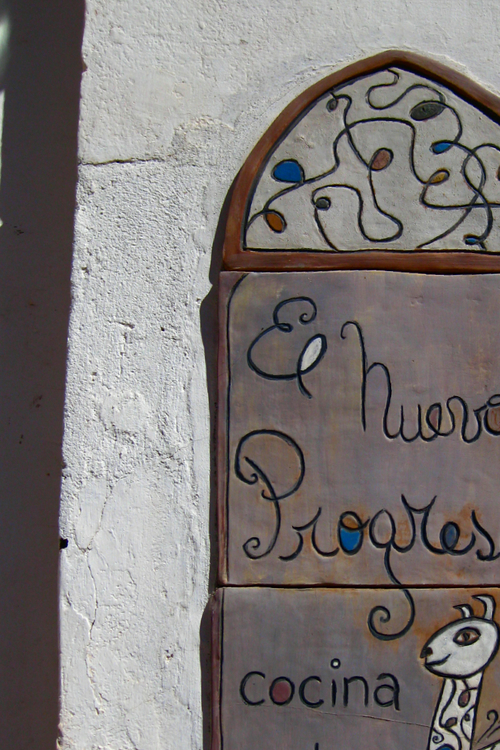 El nuevo
Progres
cocina